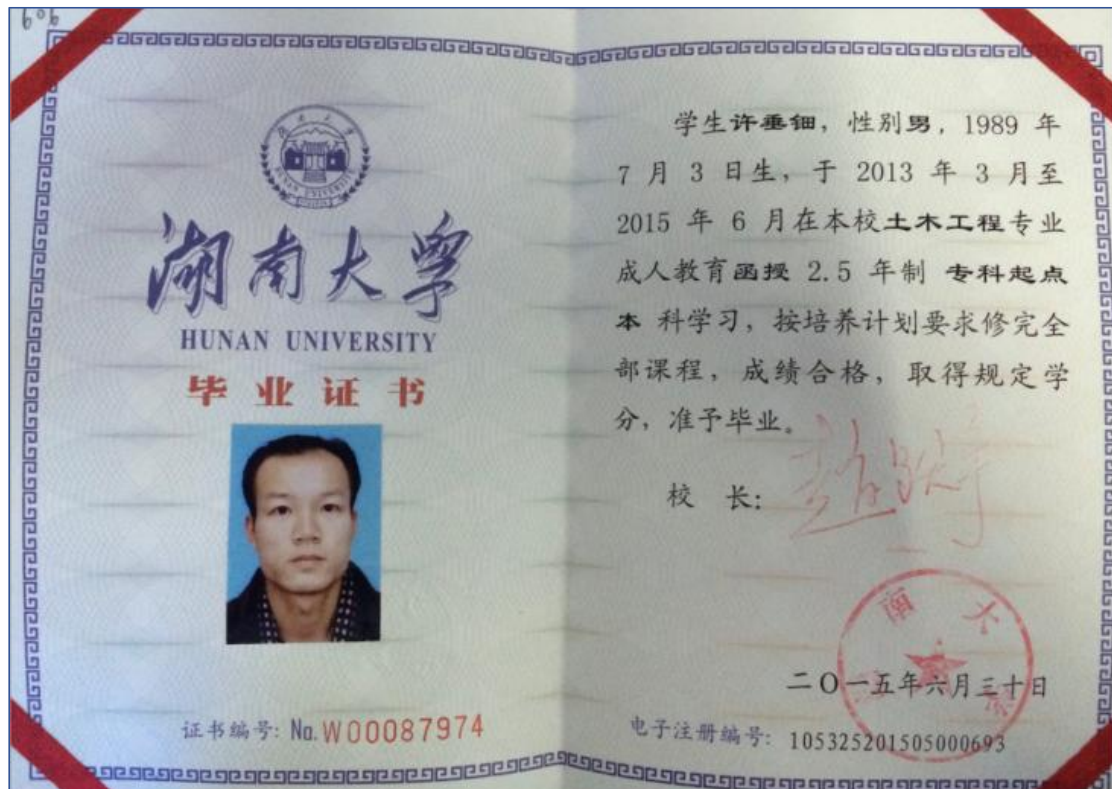 606
湖南大学
HUNAN UNIVERSITY
湖南大学
HUNAN UNIVERSITY
毕业证书
证书编号: No. W00087974
学生许垂钿，性别男，1989 年
7 月 3 日生，于 2013 年 3 月至
2015 年 6 月在本校土木工程专业
成人教育函授 2.5 年制 专科起点
本 科学习，按培养计划要求修完全
部课程，成绩合格，取得规定学
分，准予毕业。
校 长:
南大
二〇一五年六月三十日
电子注册编号: 105325201505000693